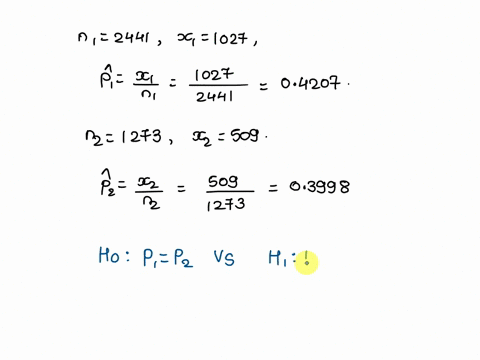 n₁=2441, x₁=1027,
p̂₁= x₁/n₁ = 1027/2441 = 0.4207.
n₂=1273, x₂=509.
p̂₂= x₂/n₂ = 509/1273 = 0.3998
H0: P₁=P₂ VS H₁: